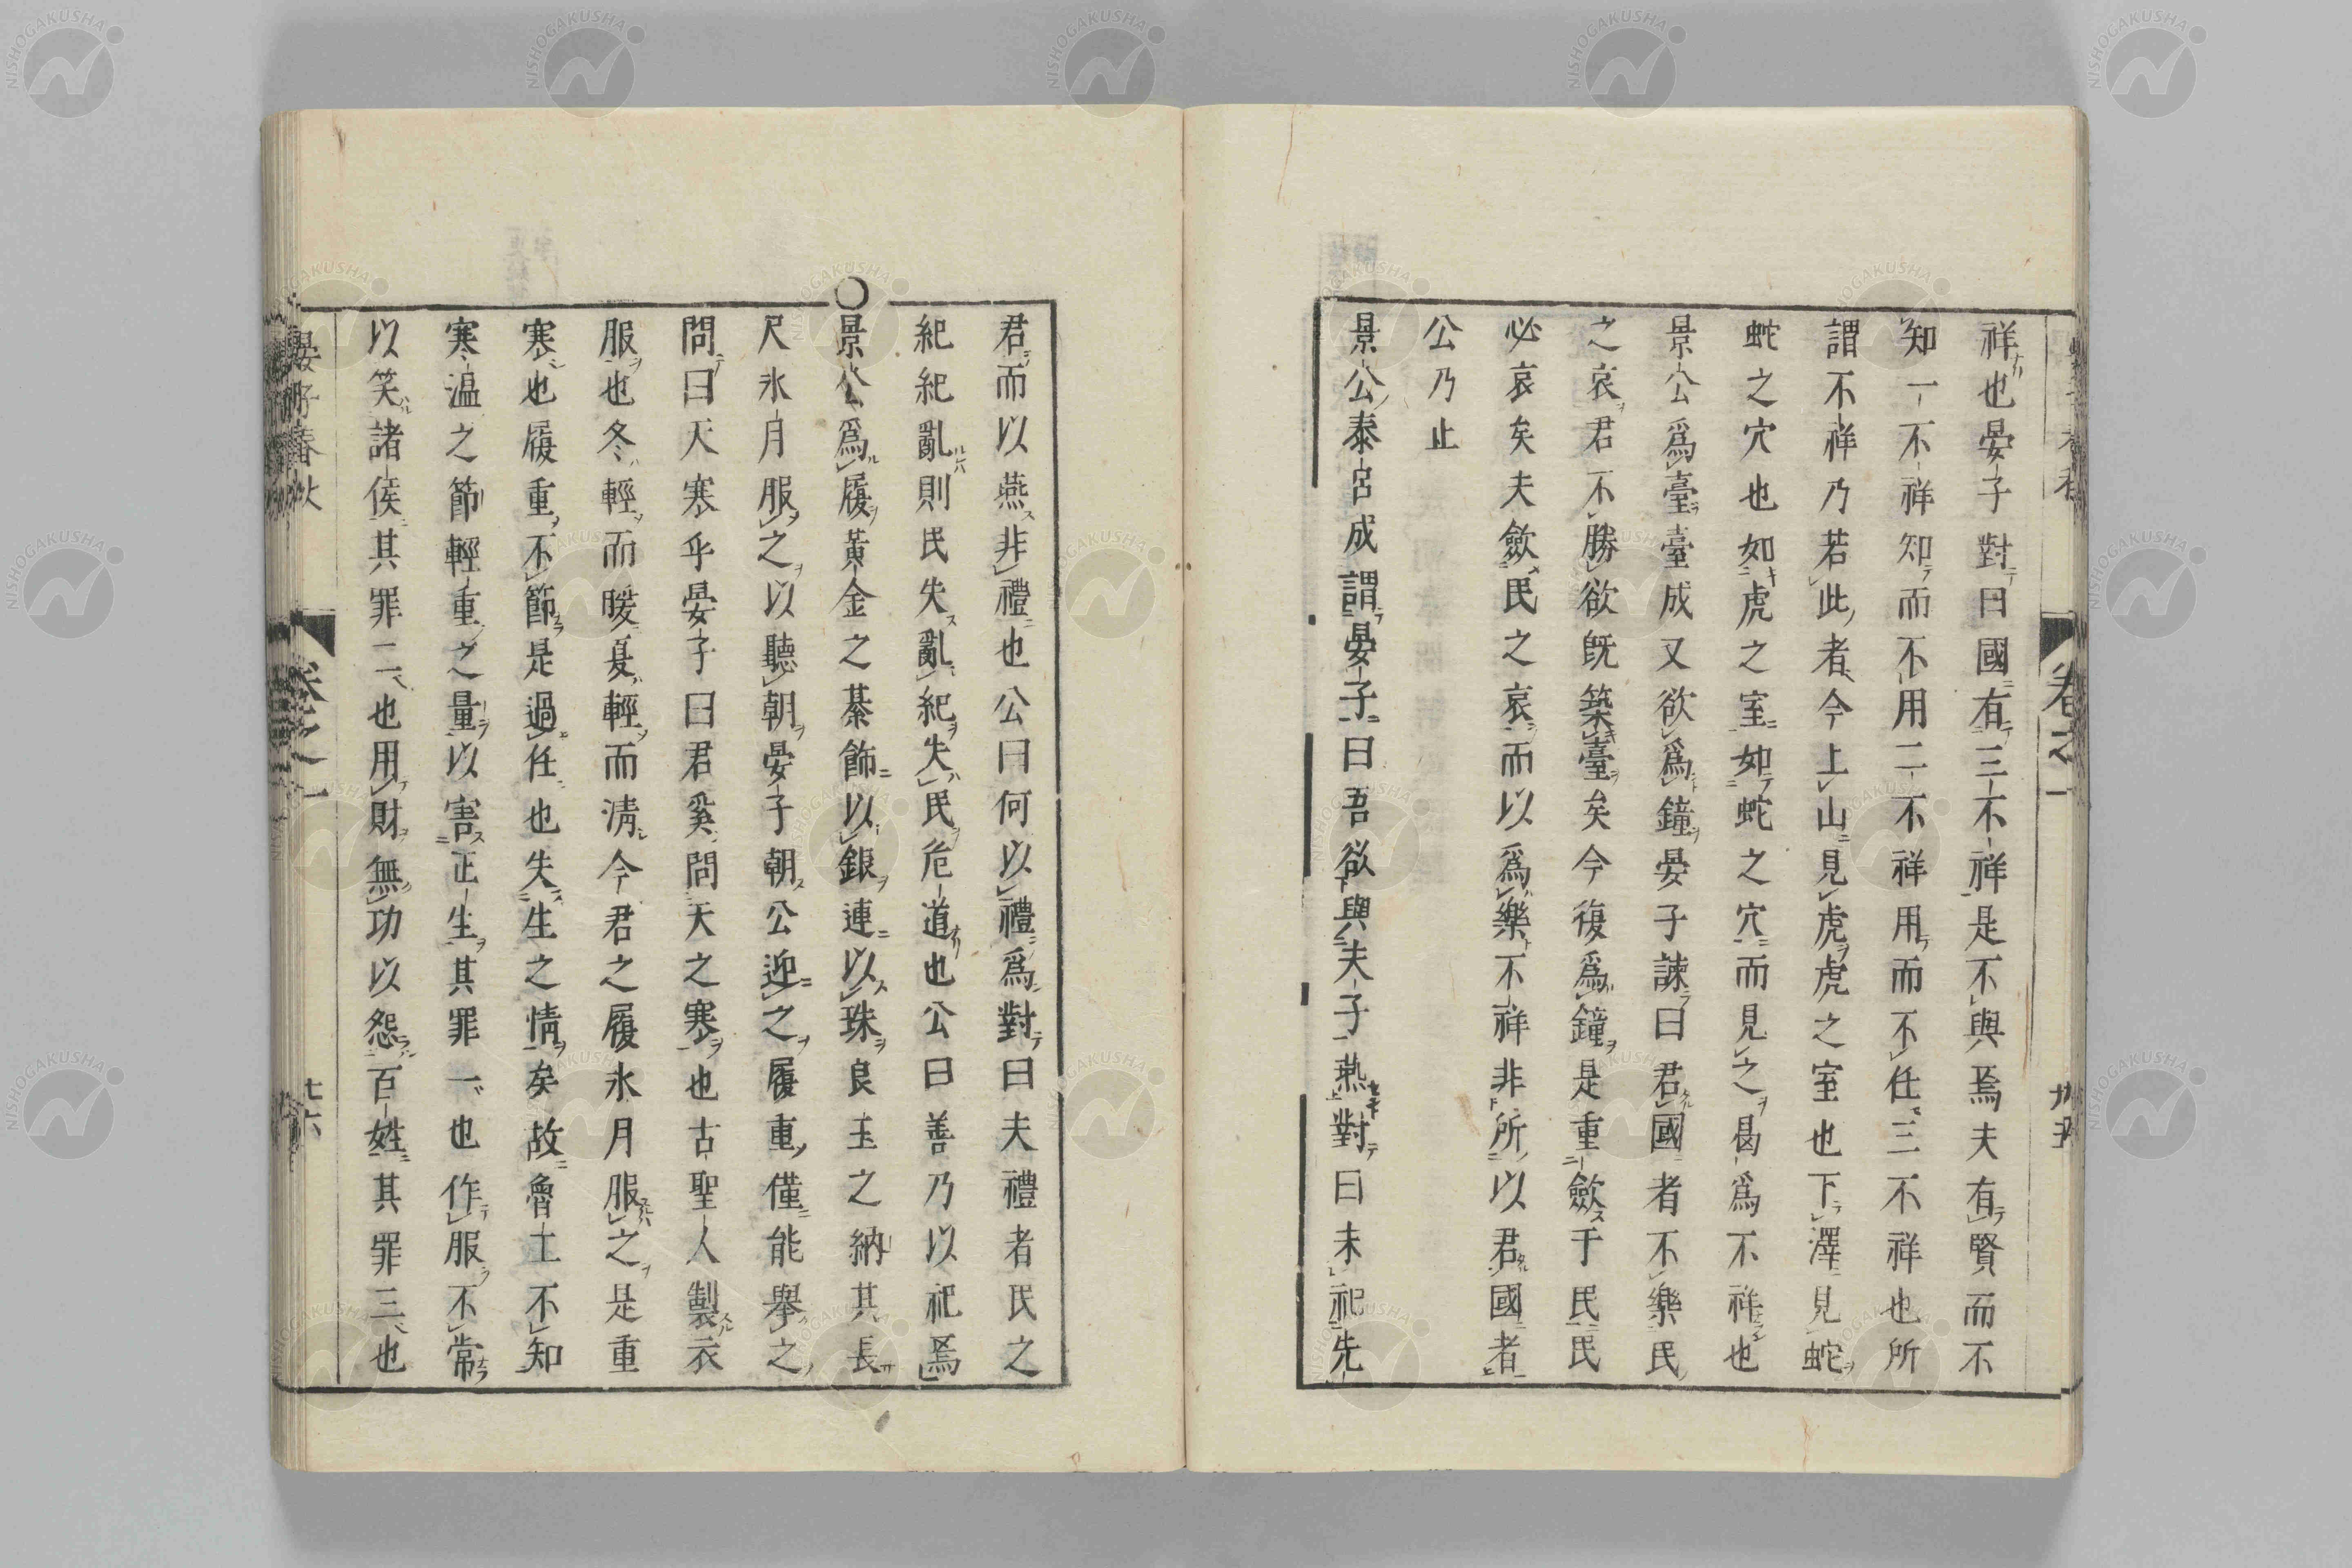 祥也晏子對曰國有三不祥是不與焉夫有賢而不
知一不祥知而不用二不祥用而不任三不祥也所
謂不祥乃若此者今上山見虎虎之室也下澤見蛇
蛇之穴也如虎之室如蛇之穴而見之曷爲不祥也
景公爲臺臺成又欲爲鐘晏子諫曰君國者不樂民
之哀君不勝欲既築臺矣今復爲鐘是重歛于民民
必哀矣夫歛民之哀而以爲樂不祥非所以君國者
公乃止
景公泰呂成謂晏子曰吾欲與夫子燕對曰未祀先
君而以燕非禮也公曰何以禮爲對曰夫禮者民之
紀紀亂則民失亂紀失民危道也公曰善乃以祀焉
○景公爲履黃金之綦飾以銀連以珠良玉之絇其長
尺氷月服之以聽朝晏子朝公迎之履重僅能舉之
問曰天寒乎晏子曰君奚問天之寒也古聖人製衣
服也冬輕而暖夏輕而淸今君之履氷月服之是重
寒也履重不節是過任也失生之情矣故魯工不知
寒温之節輕重之量以害正生其罪一也作服不常
以笑諸侯其罪二也用財無功以怨百姓其罪三也
晏子春秋
卷之一
NISHOGAKUSHA